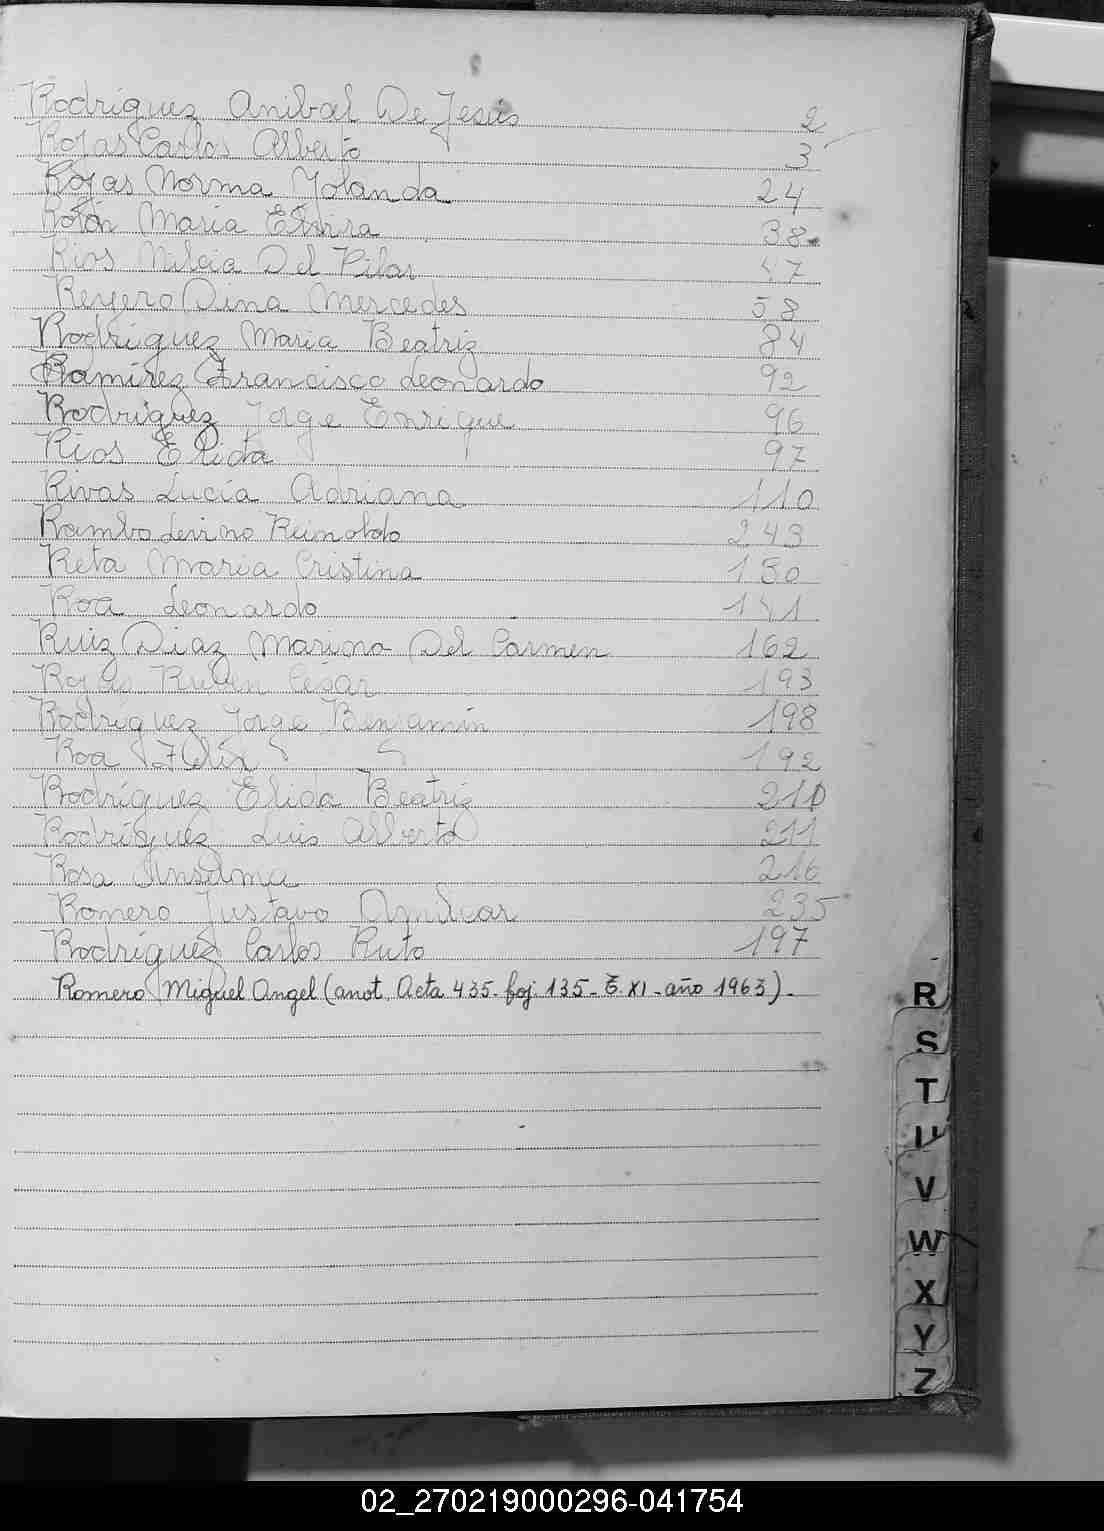 Rodríguez Anibal De Jesús 2
Rojas Carlos Alberto 3
Rojas Norma Yolanda 24
Maria Elvira 38
Rios Del Pilar 47
Reyero Dina Mercedes 58
Rodríguez Maria Beatriz 84
Ramírez Francisco Leonardo 92
Rodríguez Jorge Enrique 96
Rios Elida 97
Rivas Lucía Adriana 110
Rambo Levino Reinoldo 243
Reta Maria Cristina 150
Roa Leonardo 141
Ruiz Diaz Marina Del Carmen 162
Rojas Ruben César 193
Rodríguez Jorge Benjamín 198
Roa Félix 192
Rodríguez Elida Beatriz 210
Rodríguez Luis Alberto 211
Rosa 216
Romero Justavo Amilcar 235
Rodríguez Carlos Ruto 197
Romero Miguel Angel (anot. Acta 435. foj. 135- T. XI - año 1963).-
R
S
T
U
V
W
X
Y
Z
02_270219000296-041754